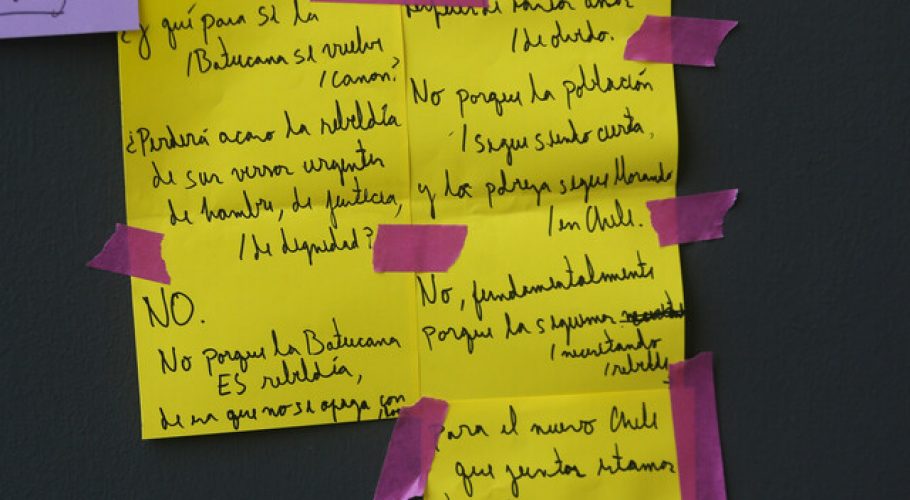 ¿y qué pasa si la
/Batucana se vuelve
/canon?
¿Perderá acaso la rebeldía
de sus versos urgentes
de hambre, de justicia,
/de dignidad?
NO.
No porque la Batucana
ES rebeldía,
de esa que no se apaga con
/de olvido.
No porque la población
/sigue siendo cierta,
y la pobreza sigue llorando
/en Chile.
No, fundamentalmente
porque la seguimos
/necesitando
/rebelde
para el nuevo Chile
que juntos estamos